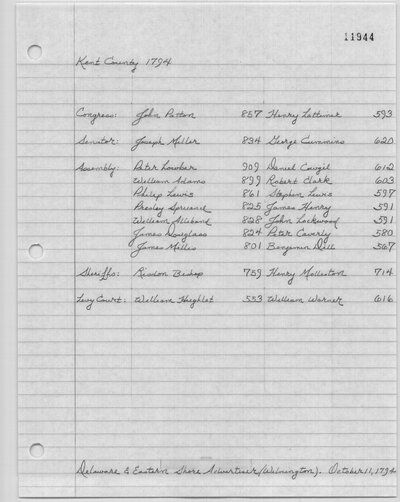 11944
Kent County 1794
Congress: John Patton 857 Henry Latimer 593
Senator: Joseph Miller 834 George Cummins 620
Assembly: Peter Lowber 909 Daniel Cowgil 612
William Adams 899 Robert Clark 603
Philip Lewis 861 Stephen Lewis 597
Presley Spruance 825 James Henry 591
William Alliband 828 John Lockwood 591
James Douglass 824 Peter Caverly 580
James Millis 801 Benjamin Dill 567
Sheriffs: Risdon Bishop 759 Henry Molleston 714
Levy Court: William 553 William Warner 616
Delaware & Eastern Shore Advertiser (Wilmington). October 11, 1794